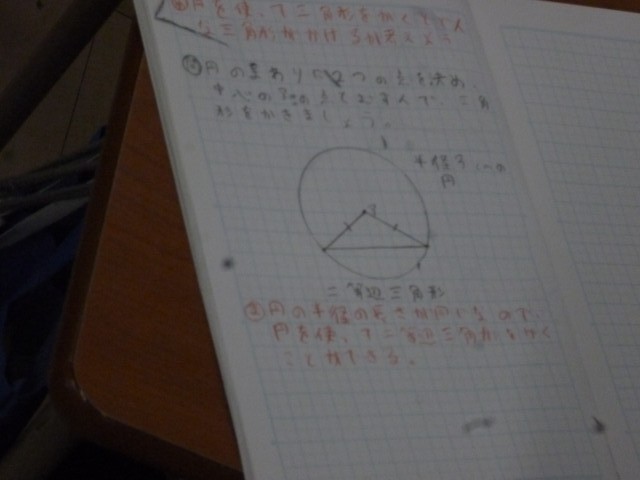 円を使って三角形をかくと、どん
な三角形がかけるか考えよう
円のまわりに2つの点を決め、
中心の点とむすんで、三角
形をかきましょう。
半径3cmの
円
二等辺三角形
円の半径の長さが同じなので、
円を使って二等辺三角形をかく
ことができる。